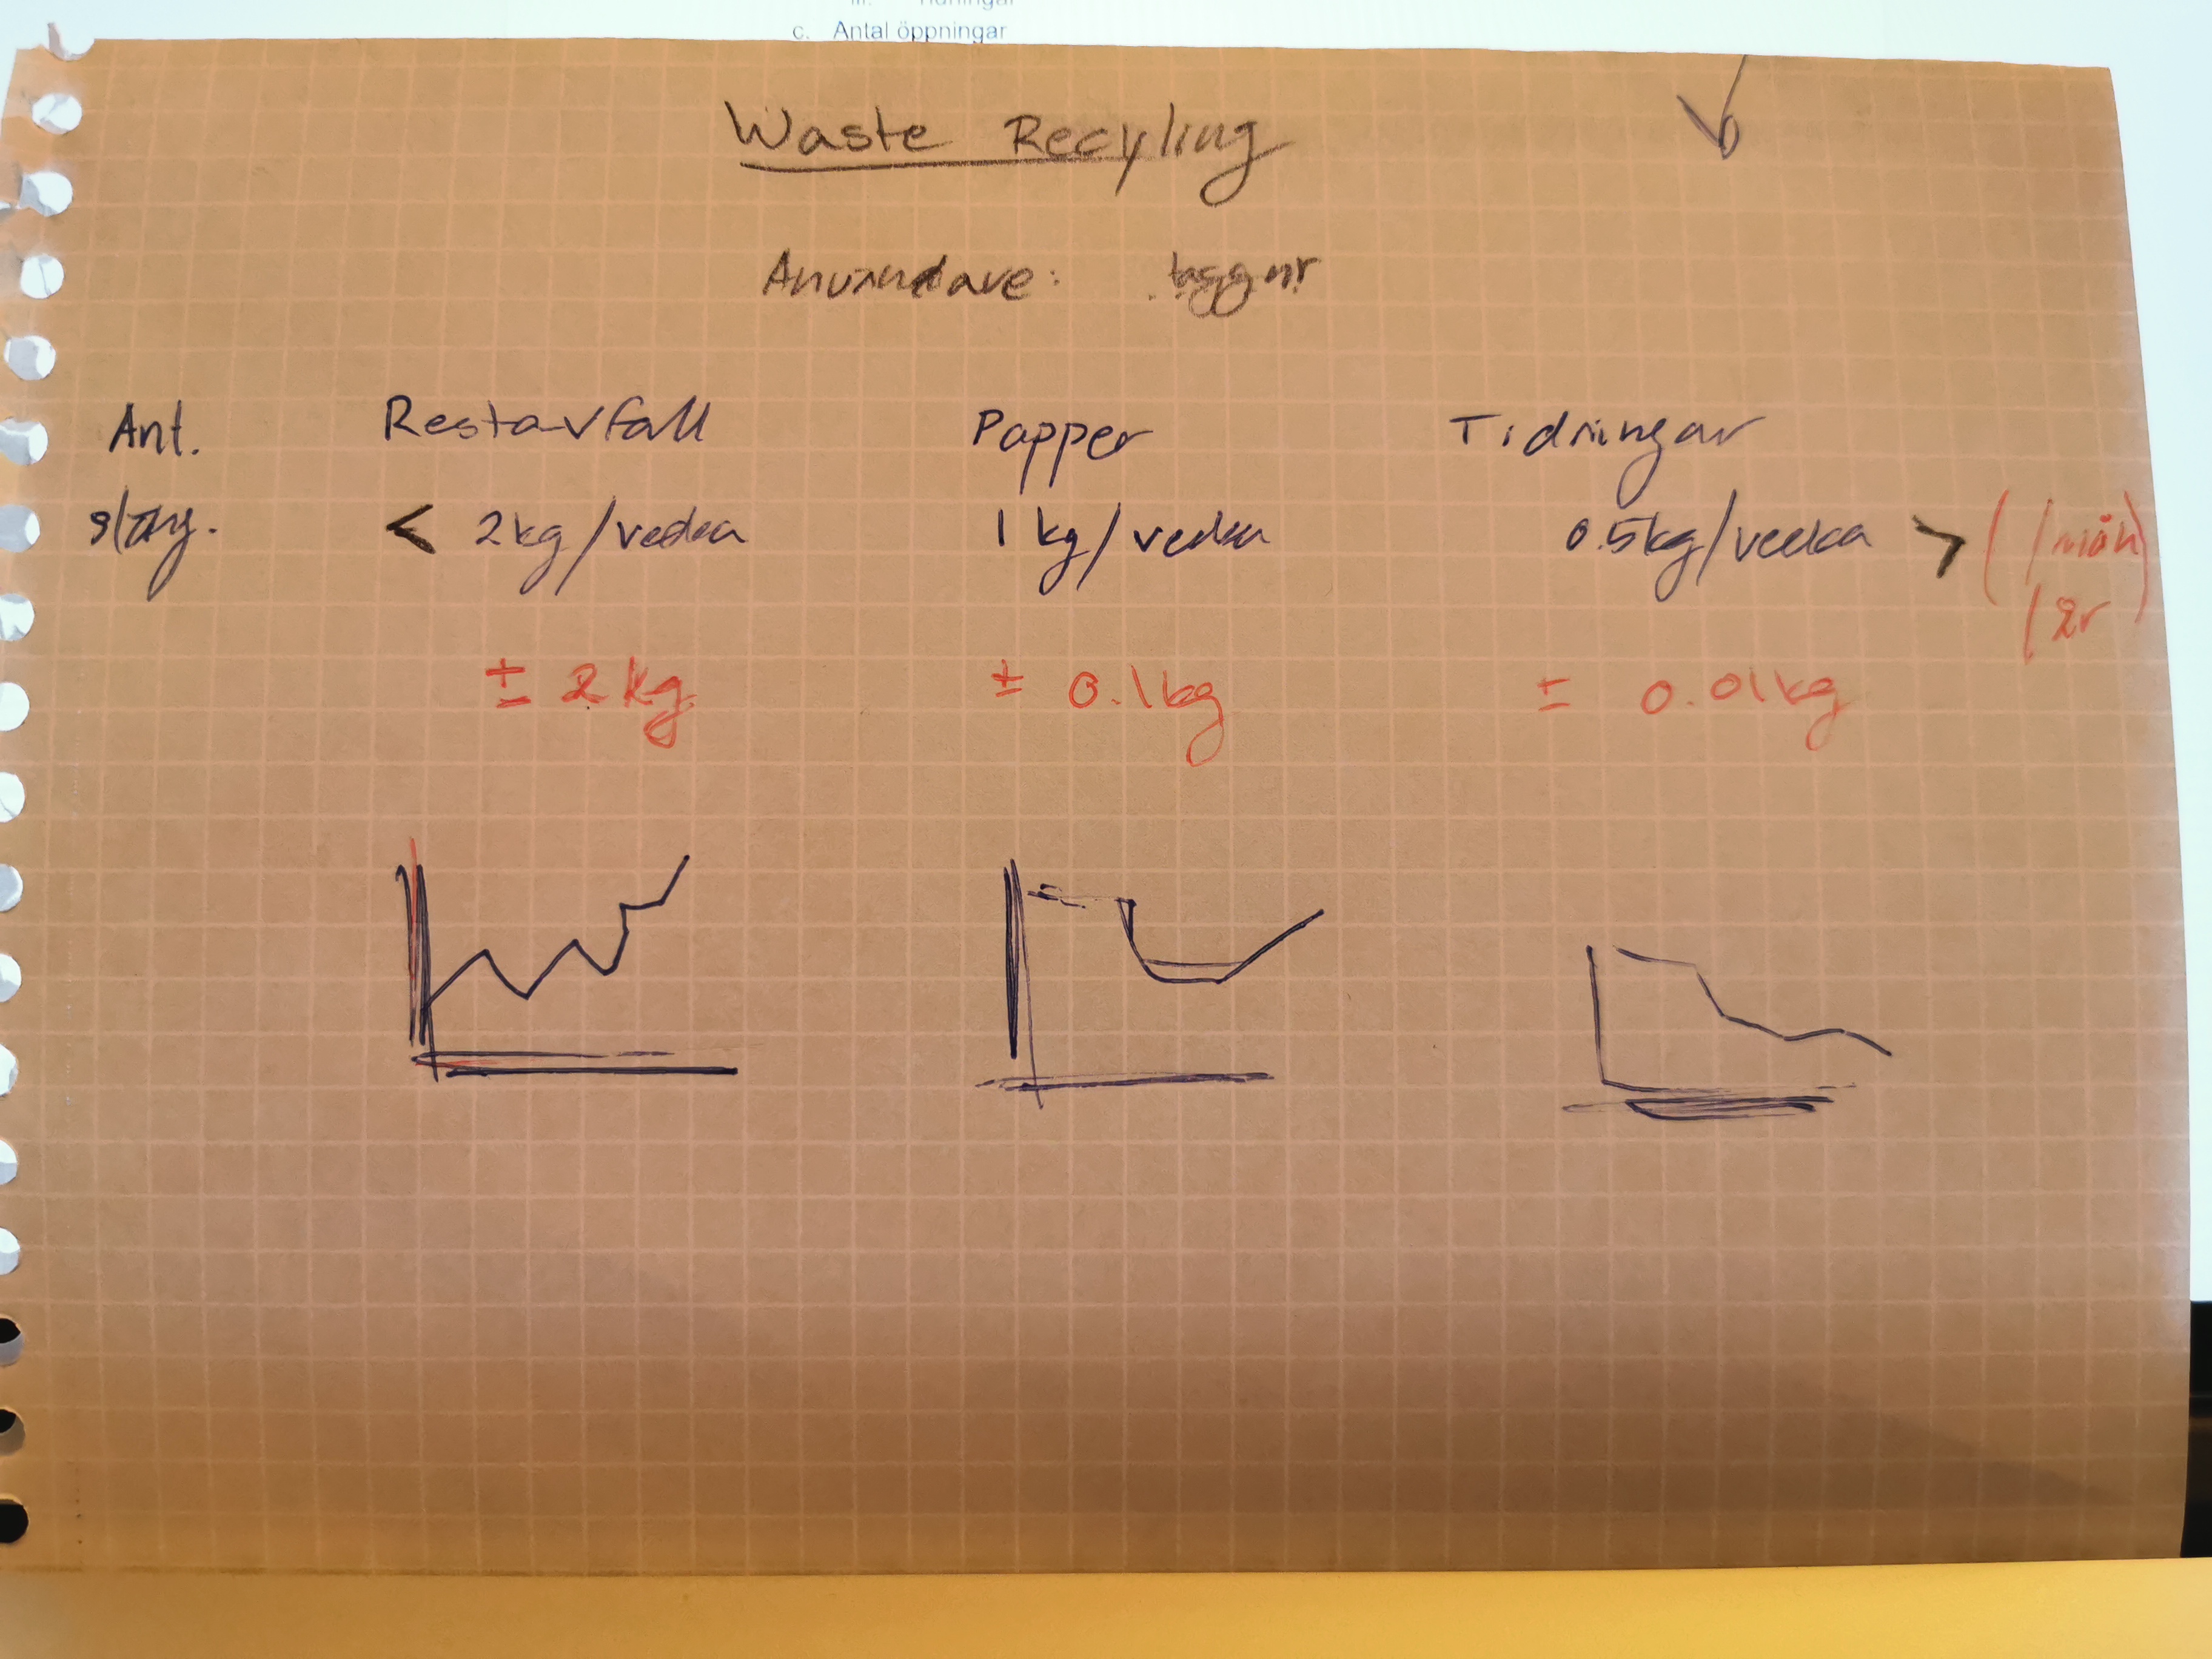 iii. Tidningar
c. Antal öppningar
Waste Recyling
Användare: tagg nr
Ant. Restavfall Papper Tidningar
släng. < 2kg/vecka 1 kg/vecka 0.5kg/vecka > ( /mån)
/år
± 2 kg ± 0.1kg ± 0.01kg